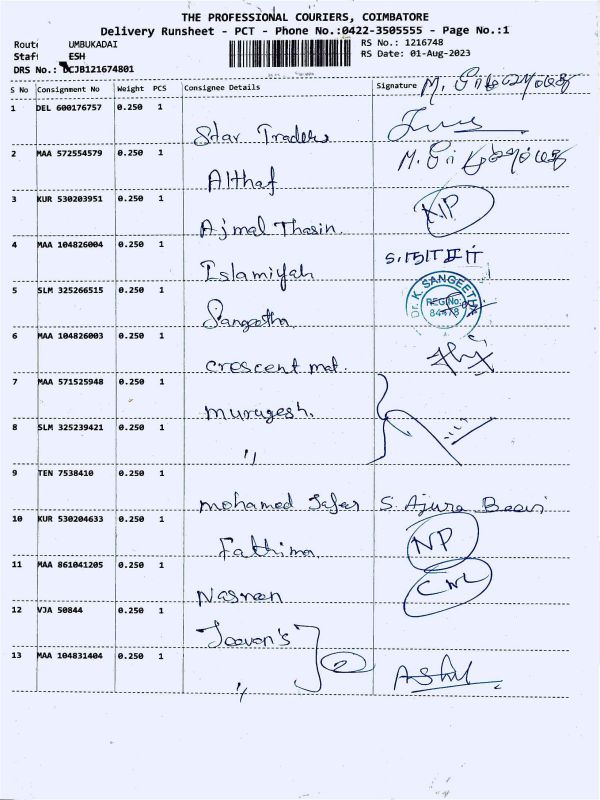 THE PROFESSIONAL COURIERS, COIMBATORE
Delivery Runsheet - PCT - Phone No.:0422-3505555 - Page No.:1
Route UMBUKADAI RS No.: 1216748
Staff ESH RS Date: 01-Aug-2023
DRS No.: DCJB121674801
S No Consignment No Weight PCS Consignee Details Signature
1 DEL 600176757 0.250 1
Star Traders
2 MAA 572554579 0.250 1
Althaf
3 KUR 530203951 0.250 1
Ajmal Thasin. N/P
4 MAA 104826004 0.250 1
Islamiyah
5 SLM 325266515 0.250 1
Dr. K. SANGEETHA
REG No:
84478
Sangeetha
6 MAA 104826003 0.250 1
crescent mat.
7 MAA 571525948 0.250 1
murugesh.
8 SLM 325239421 0.250 1
"
9 TEN 7538410 0.250 1
mohamed Jafer S. Ajura Beevi
10 KUR 530204633 0.250 1
Fathima NP
11 MAA 861041205 0.250 1
Nasreen
12 VJA 50844 0.250 1
Jeevan's
13 MAA 104831404 0.250 1
" 2